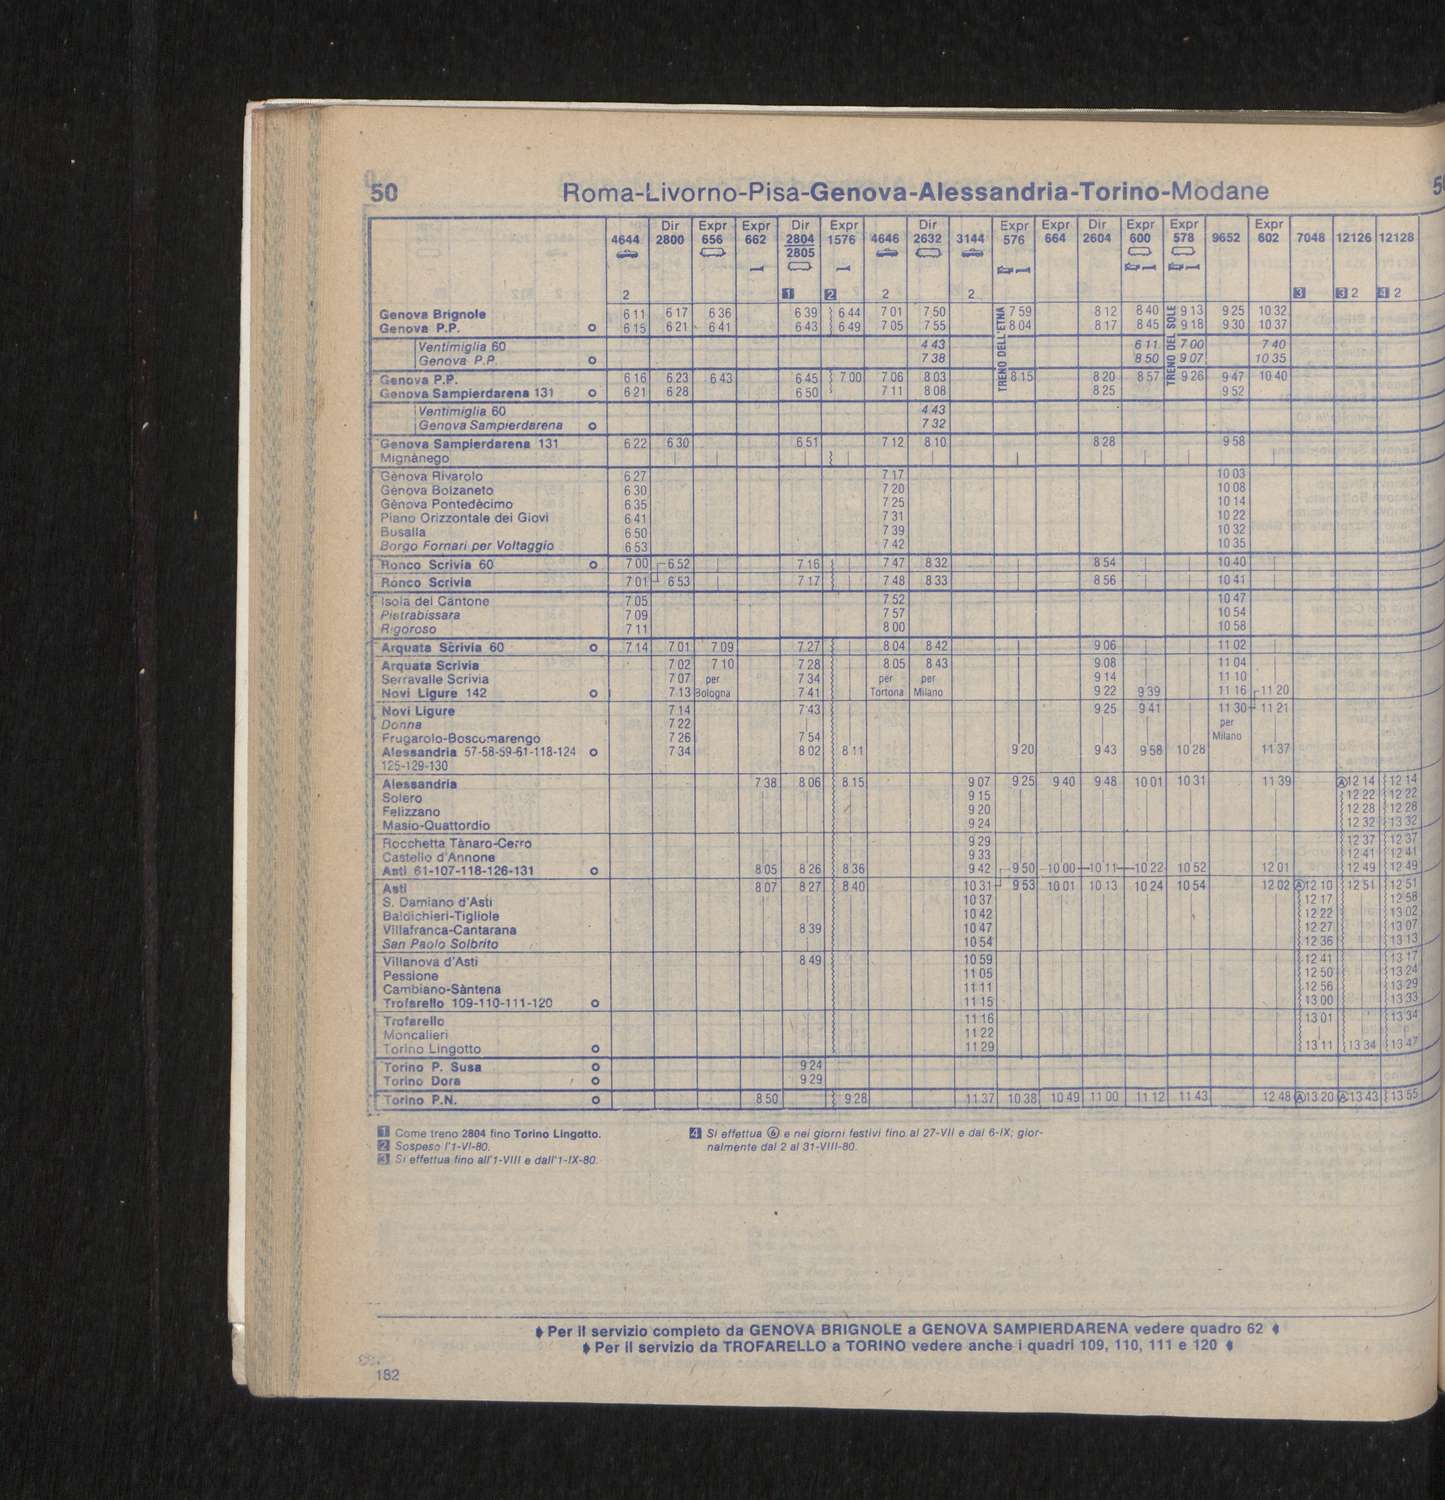 50 Roma-Livorno-Pisa-Genova-Alessandria-Torino-Modane 50
Dir Expr Expr Dir Expr Dir Expr Expr Dir Expr Expr Expr
4644 2800 656 662 2804 1576 4646 2632 3144 576 664 2604 600 578 9652 602 7048 12126 12128
2805
2 1 2 2 2 3 3 2 4 2
TRENO DELL'ETNA
TRENO DEL SOLE
Genova Brignole 6 11 6 17 6 36 6 39 6 44 7 01 7 50 7 59 8 12 8 40 9 13 9 25 10 32
Genova P.P. o 6 15 6 21 6 41 6 43 6 49 7 05 7 55 8 04 8 17 8 45 9 18 9 30 10 37
Ventimiglia 60 4 43 6 11 7 00 7 40
Genova P.P. o 7 38 8 50 9 07 10 35
Genova P.P. 6 16 6 23 6 43 6 45 7 00 7 06 8 03 8 15 8 20 8 57 9 26 9 47 10 40
Genova Sampierdarena 131 o 6 21 6 28 6 50 7 11 8 08 8 25 9 52
Ventimiglia 60 4 43
Genova Sampierdarena o 7 32
Genova Sampierdarena 131 6 22 6 30 6 51 7 12 8 10 8 28 9 58
Mignànego
Gènova Rivarolo 6 27 7 17 10 03
Gènova Bolzaneto 6 30 7 20 10 08
Gènova Pontedècimo 6 35 7 25 10 14
Piano Orizzontale dei Giovi 6 41 7 31 10 22
Busalla 6 50 7 39 10 32
Borgo Fornari per Voltaggio 6 53 7 42 10 35
Ronco Scrivia 60 o 7 00 6 52 7 16 7 47 8 32 8 54 10 40
Ronco Scrivia 7 01 6 53 7 17 7 48 8 33 8 56 10 41
Isola del Cantone 7 05 7 52 10 47
Pietrabissara 7 09 7 57 10 54
Rigoroso 7 11 8 00 10 58
Arquata Scrivia 60 o 7 14 7 01 7 09 7 27 8 04 8 42 9 06 11 02
Arquata Scrivia 7 02 7 10 7 28 8 05 8 43 9 08 11 04
Serravalle Scrivia 7 07 per 7 34 per per 9 14 11 10
Novi Ligure 142 o 7 13 Bologna 7 41 Tortona Milano 9 22 9 39 11 16 11 20
Novi Ligure 7 14 7 43 9 25 9 41 11 30 11 21
Donna 7 22 per
Frugarolo-Boscomarengo 7 26 7 54 Milano
Alessandria 57-58-59-61-118-124 o 7 34 8 02 8 11 9 20 9 43 9 58 10 28 11 37
125-129-130
Alessandria 7 38 8 06 8 15 9 07 9 25 9 40 9 48 10 01 10 31 11 39 Ⓐ12 14 12 14
Solero 9 15 12 22 12 22
Felizzano 9 20 12 28 12 28
Masio-Quattordio 9 24 12 32 13 32
Rocchetta Tànaro-Cerro 9 29 12 37 12 37
Castello d'Annone 9 33 12 41 12 41
Asti 61-107-118-126-131 o 8 05 8 26 8 36 9 42 9 50 10 00 10 11 10 22 10 52 12 01 12 49 12 49
Asti 8 07 8 27 8 40 10 31 9 53 10 01 10 13 10 24 10 54 12 02 Ⓐ12 10 12 51 12 51
S. Damiano d'Asti 10 37 12 17 12 58
Baldichieri-Tigliole 10 42 12 22 13 02
Villafranca-Cantarana 8 39 10 47 12 27 13 07
San Paolo Solbrito 10 54 12 36 13 13
Villanova d'Asti 8 49 10 59 12 41 13 17
Pessione 11 05 12 50 13 24
Cambiano-Sàntena 11 11 12 56 13 29
Trofarello 109-110-111-120 o 11 15 13 00 13 33
Trofarello 11 16 13 01 13 34
Moncalieri 11 22
Torino Lingotto o 11 29 13 11 13 34 13 47
Torino P. Susa o 9 24
Torino Dora o 9 29
Torino P.N. o 8 50 9 28 11 37 10 38 10 49 11 00 11 12 11 43 12 48 Ⓐ13 20 Ⓐ13 43 13 55
1 Come treno 2804 fino Torino Lingotto.
2 Sospeso l'1-VI-80.
3 Si effettua fino all'1-VIII e dall'1-IX-80.
4 Si effettua ⑥ e nei giorni festivi fino al 27-VII e dal 6-IX; gior-
nalmente dal 2 al 31-VIII-80.
Per il servizio completo da GENOVA BRIGNOLE a GENOVA SAMPIERDARENA vedere quadro 62
Per il servizio da TROFARELLO a TORINO vedere anche i quadri 109, 110, 111 e 120
182